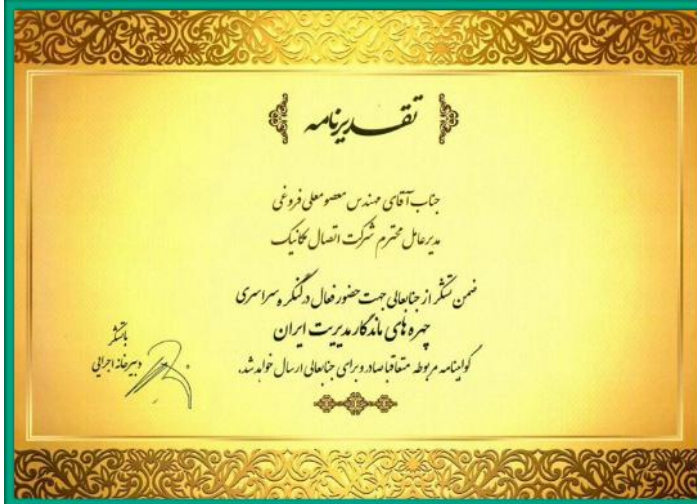 تقدیرنامه
جناب آقای مهندس معصومعلی فروغی
مدیرعامل محترم شرکت اتصال مکانیک
ضمن تشکر از جنابعالی جهت حضور فعال در کنگره سراسری
چهره های ماندگار مدیریت ایران
گواهینامه مربوطه متعاقبا صادر و برای جنابعالی ارسال خواهد شد.
باتشکر
دبیرخانه اجرایی